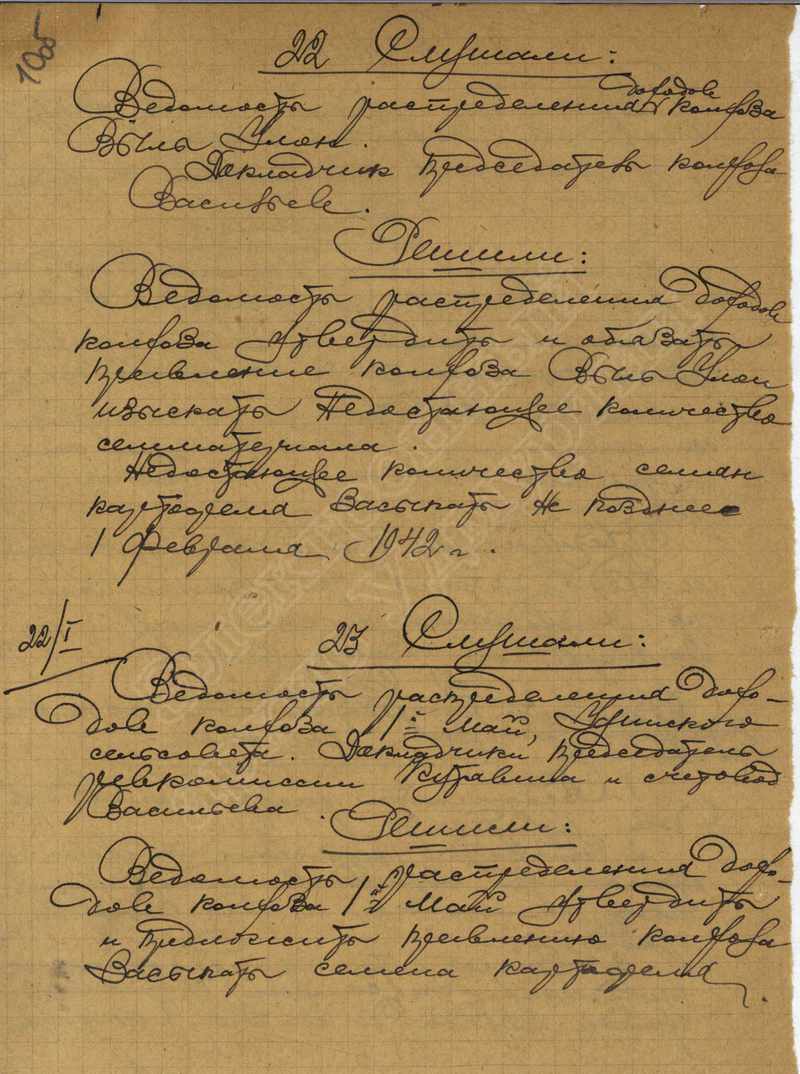 105
22 Слушали:
Ведомость распределения доходов колхоза
Выль Улон.
Докладчик председатель колхоза
Васильев.
Решили:
Ведомость распределения доходов
колхоза утвердить и обязать
правление колхоза Выль Улон
изыскать недостающее количество
семматериала.
Недостающее количество семян
картофеля засыпать не позднее
1 февраля 1942 г.
22/I
23 Слушали:
Ведомость распределения дохо-
дов колхоза 1е Май,
сельсовета. Докладчики председатель
ревкомиссии и счетовод
Васильева.
Решили:
Ведомость распределения дохо-
дов колхоза 1е Май утвердить
и предложить правлению колхоза
засыпать семена картофеля.